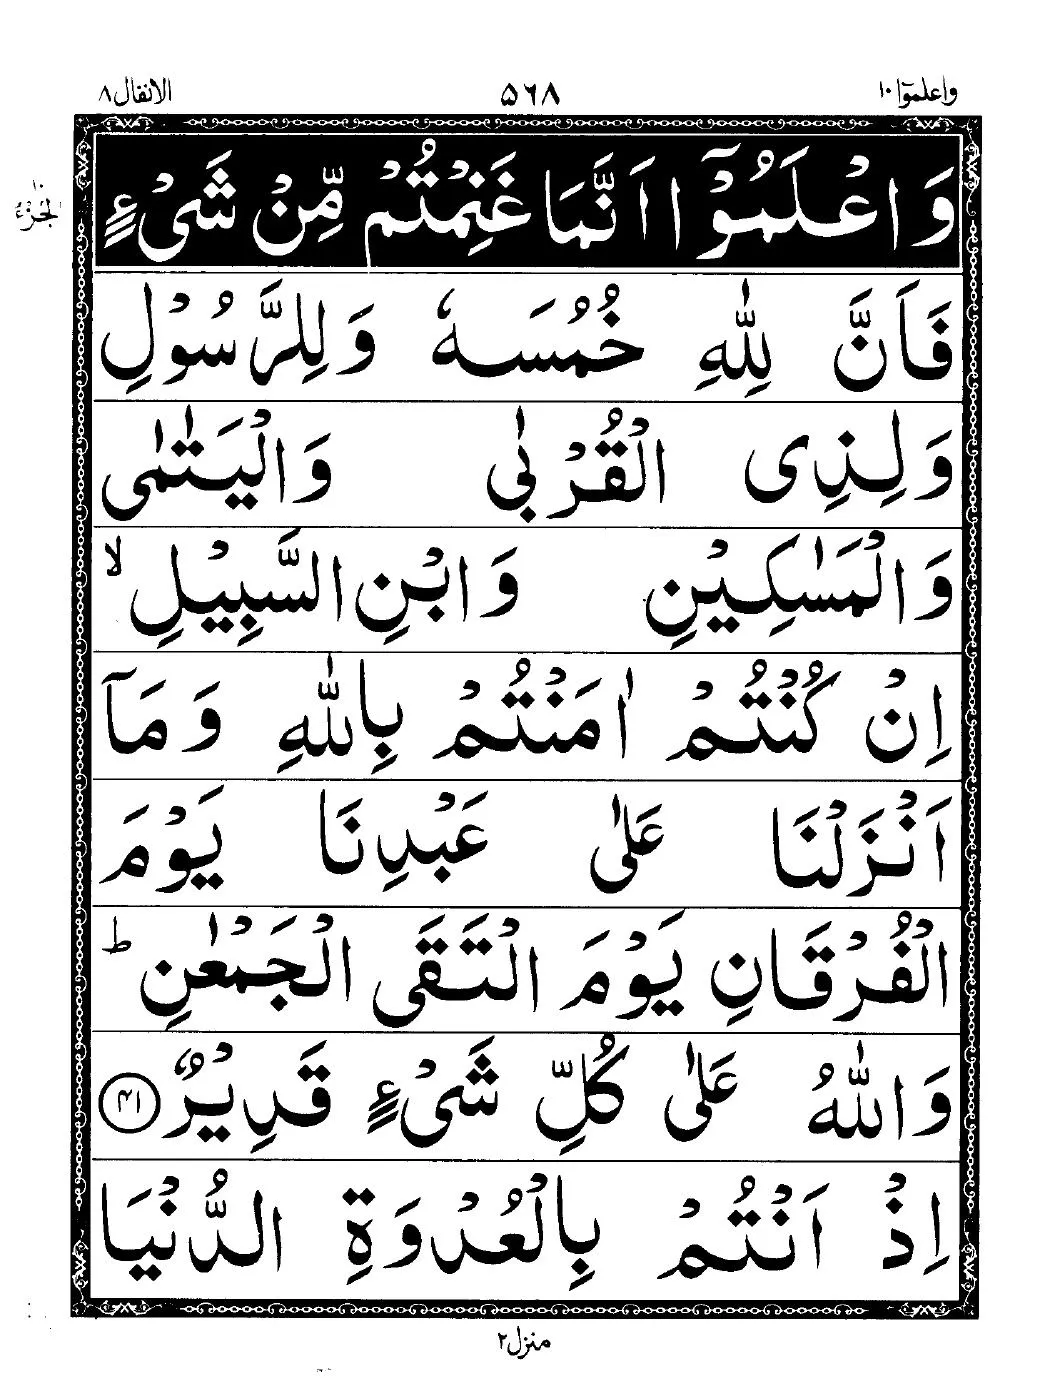 واعلموۤا ۱۰
۵٦۸
الانفال ۸
وَاعْلَمُوْۤا اَنَّمَا غَنِمْتُمْ مِّنْ شَیْءٍ
۱۰
الجزء
فَاَنَّ لِلّٰهِ خُمُسَهٗ وَلِلرَّسُوْلِ
وَلِذِی الْقُرْبٰی وَالْیَتٰمٰی
وَالْمَسٰكِیْنِ وَابْنِ السَّبِیْلِ ۙ
اِنْ كُنْتُمْ اٰمَنْتُمْ بِاللّٰهِ وَمَاۤ
اَنْزَلْنَا عَلٰی عَبْدِنَا یَوْمَ
الْفُرْقَانِ یَوْمَ الْتَقَی الْجَمْعٰنِ ؕ
وَاللّٰهُ عَلٰی كُلِّ شَیْءٍ قَدِیْرٌ ۴۱
اِذْ اَنْتُمْ بِالْعُدْوَةِ الدُّنْیَا
منزل ۲